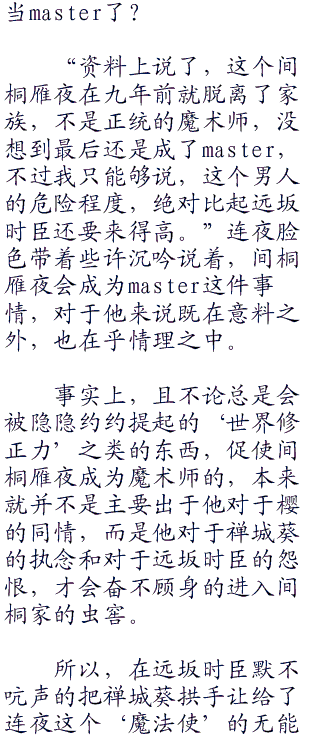 当master了？
“资料上说了，这个间
桐雁夜在九年前就脱离了家
族，不是正统的魔术师，没
想到最后还是成了master，
不过我只能够说，这个男人
的危险程度，绝对比起远坂
时臣还要来得高。”连夜脸
色带着些许沉吟说着，间桐
雁夜会成为master这件事
情，对于他来说既在意料之
外，也在乎情理之中。
事实上，且不论总是会
被隐隐约约提起的‘世界修
正力’之类的东西，促使间
桐雁夜成为魔术师的，本来
就并不是主要出于他对于樱
的同情，而是他对于禅城葵
的执念和对于远坂时臣的怨
恨，才会奋不顾身的进入间
桐家的虫窖。
所以，在远坂时臣默不
吭声的把禅城葵拱手让给了
连夜这个‘魔法使’的无能